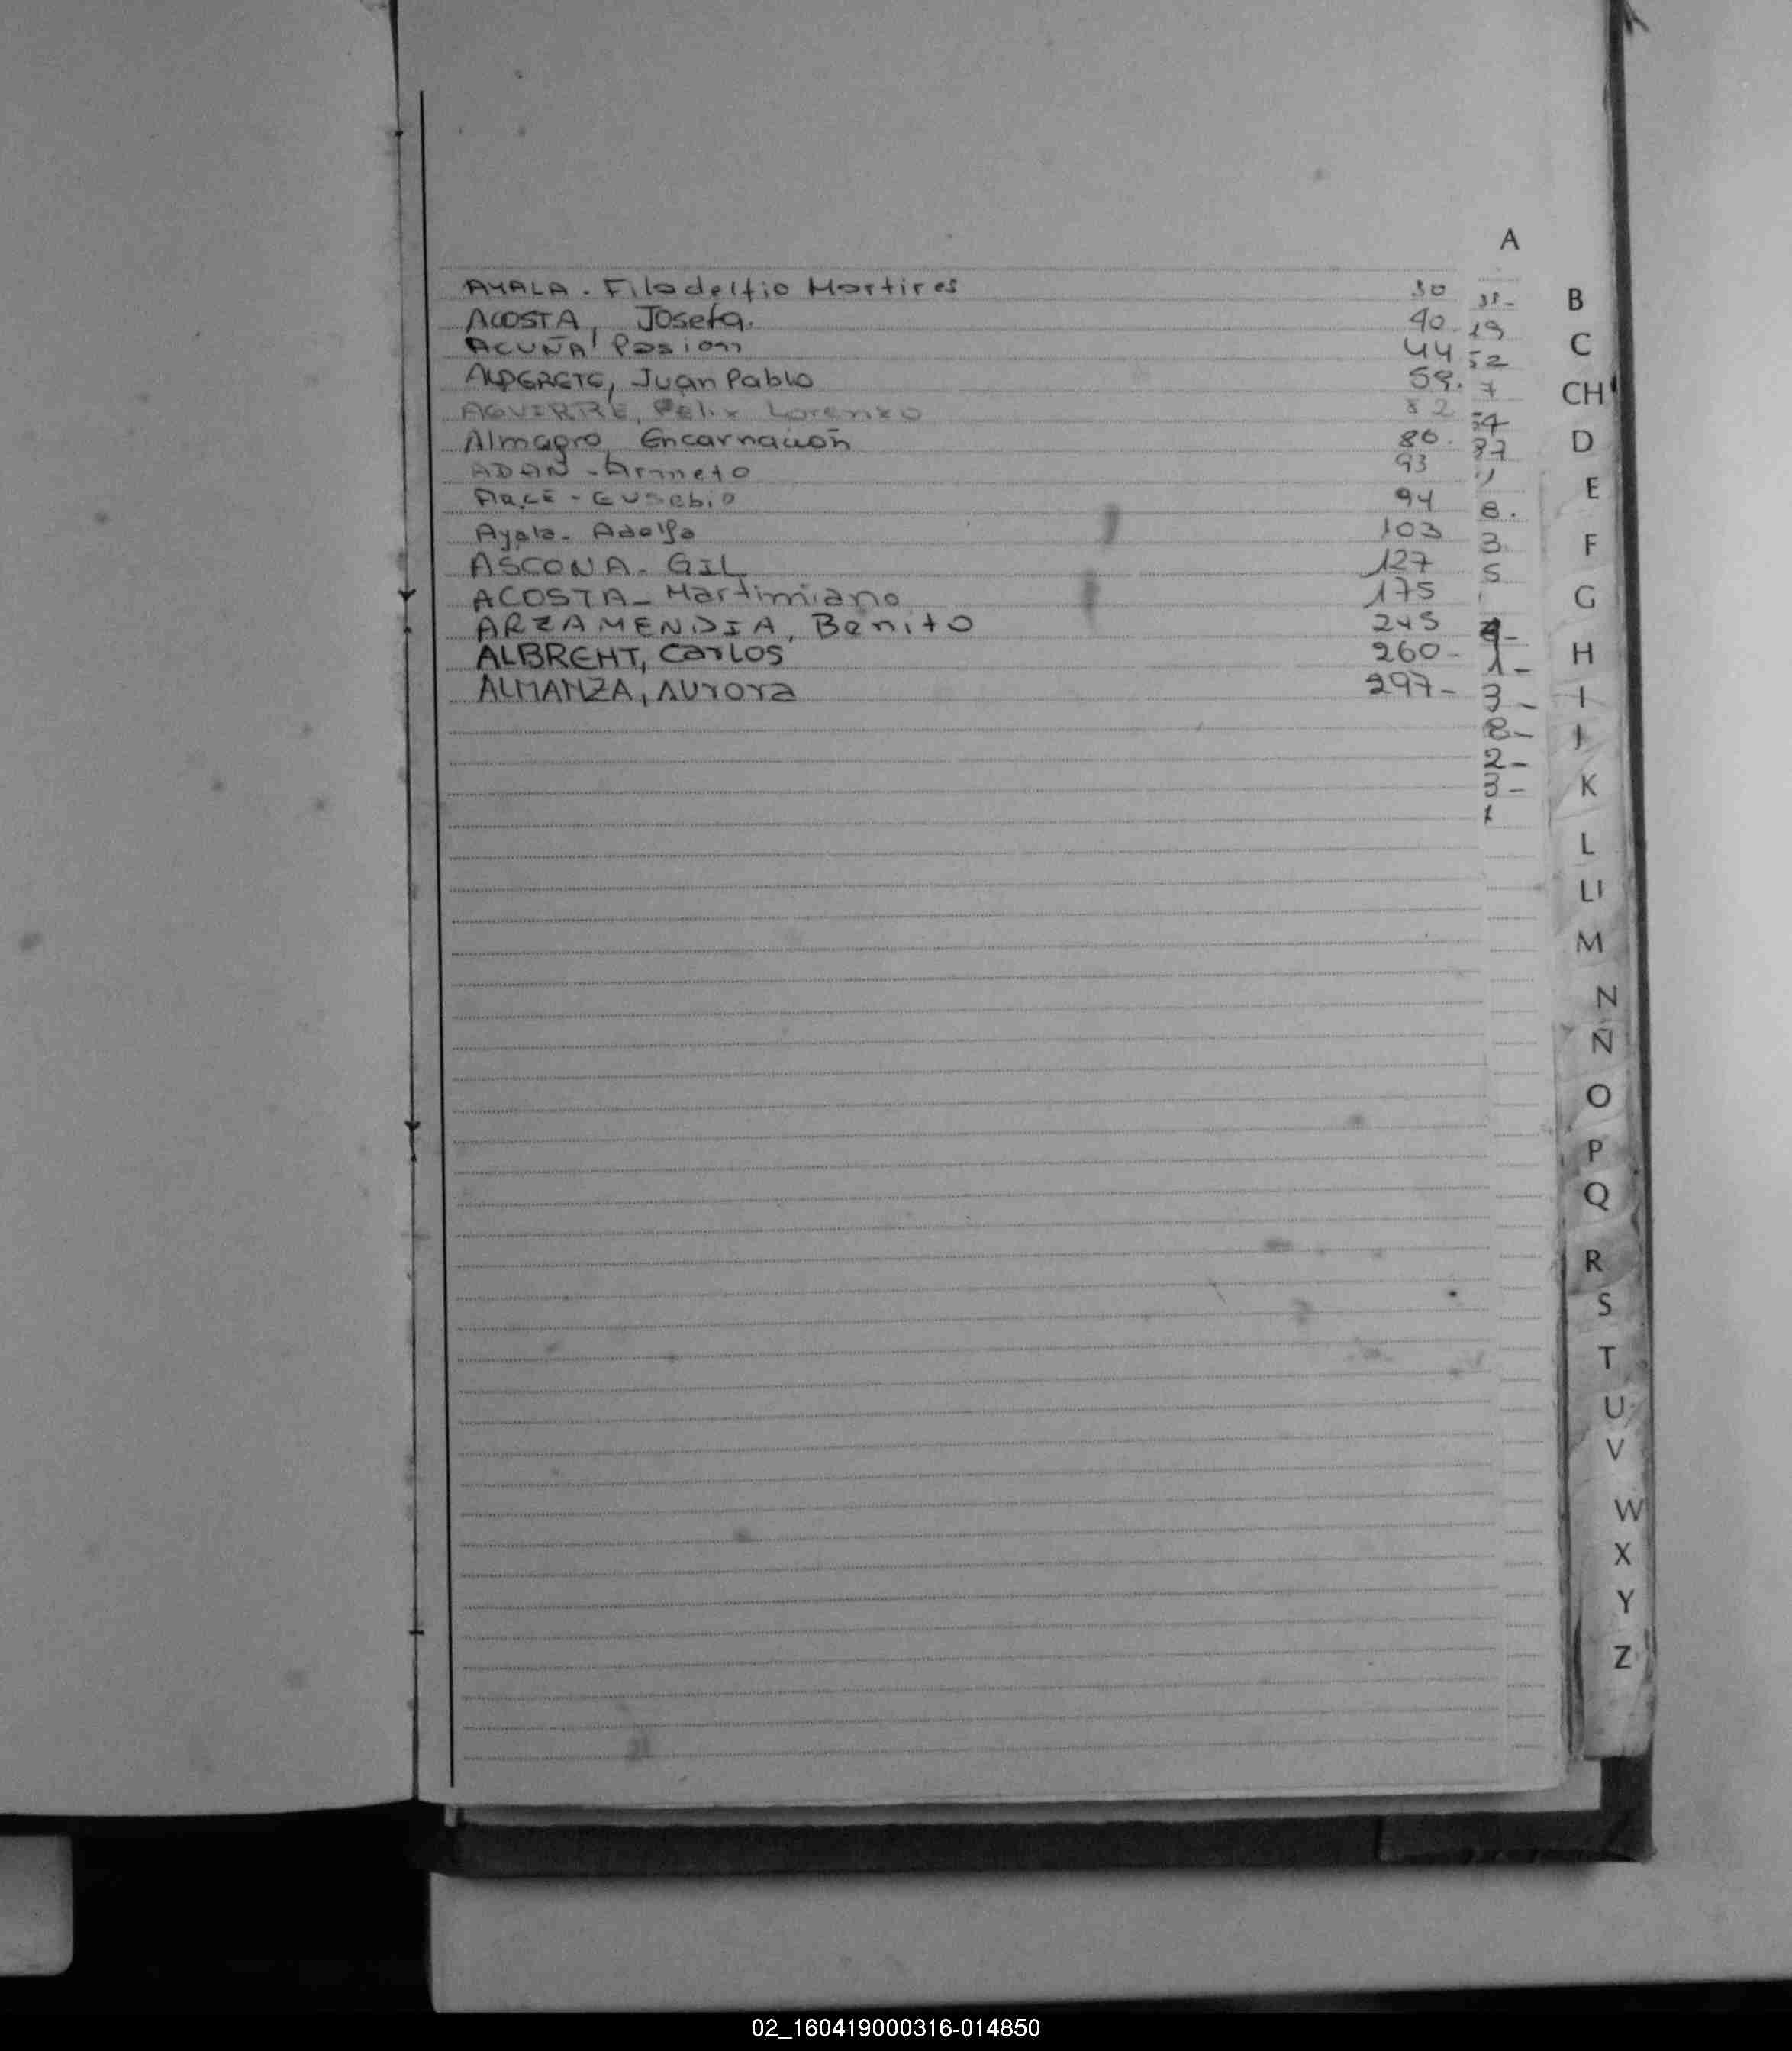 A
AYALA. Filadelfio Martires 30
ACOSTA, Josefa. 40
ACUÑA Pasion 44
ALDERETE, Juan Pablo 59.
AGUIRRE, Felix Lorenzo 82
Almagro, Encarnación 86.
ADAN - 93
ARCE - Eusebio 94
Ayala - Adolfa 103
ASCONA - GIL 127
ACOSTA - Martimiano 175
ARZAMENDIA, Benito 245
ALBREHT, Carlos 260-
ALMANZA, Aurora 297-
19
52
7
87
8.
3
5
1-
3-
8-
2-
3-
1
B
C
CH
D
E
F
G
H
I
J
K
L
Ll
M
N
Ñ
O
P
Q
R
S
T
U
V
W
X
Y
Z
02_160419000316-014850